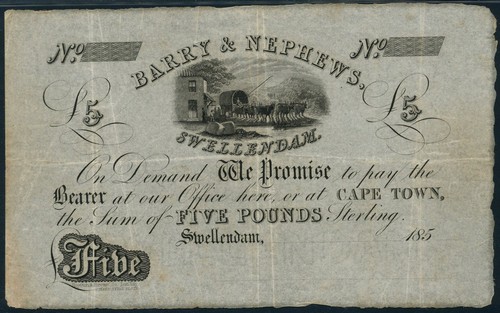 No No
BARRY & NEPHEWS,
£5 £5
SWELLENDAM.
On Demand We Promise to pay the
Bearer at our Office here, or at CAPE TOWN,
the Sum of FIVE POUNDS Sterling.
Swellendam, 185
Five